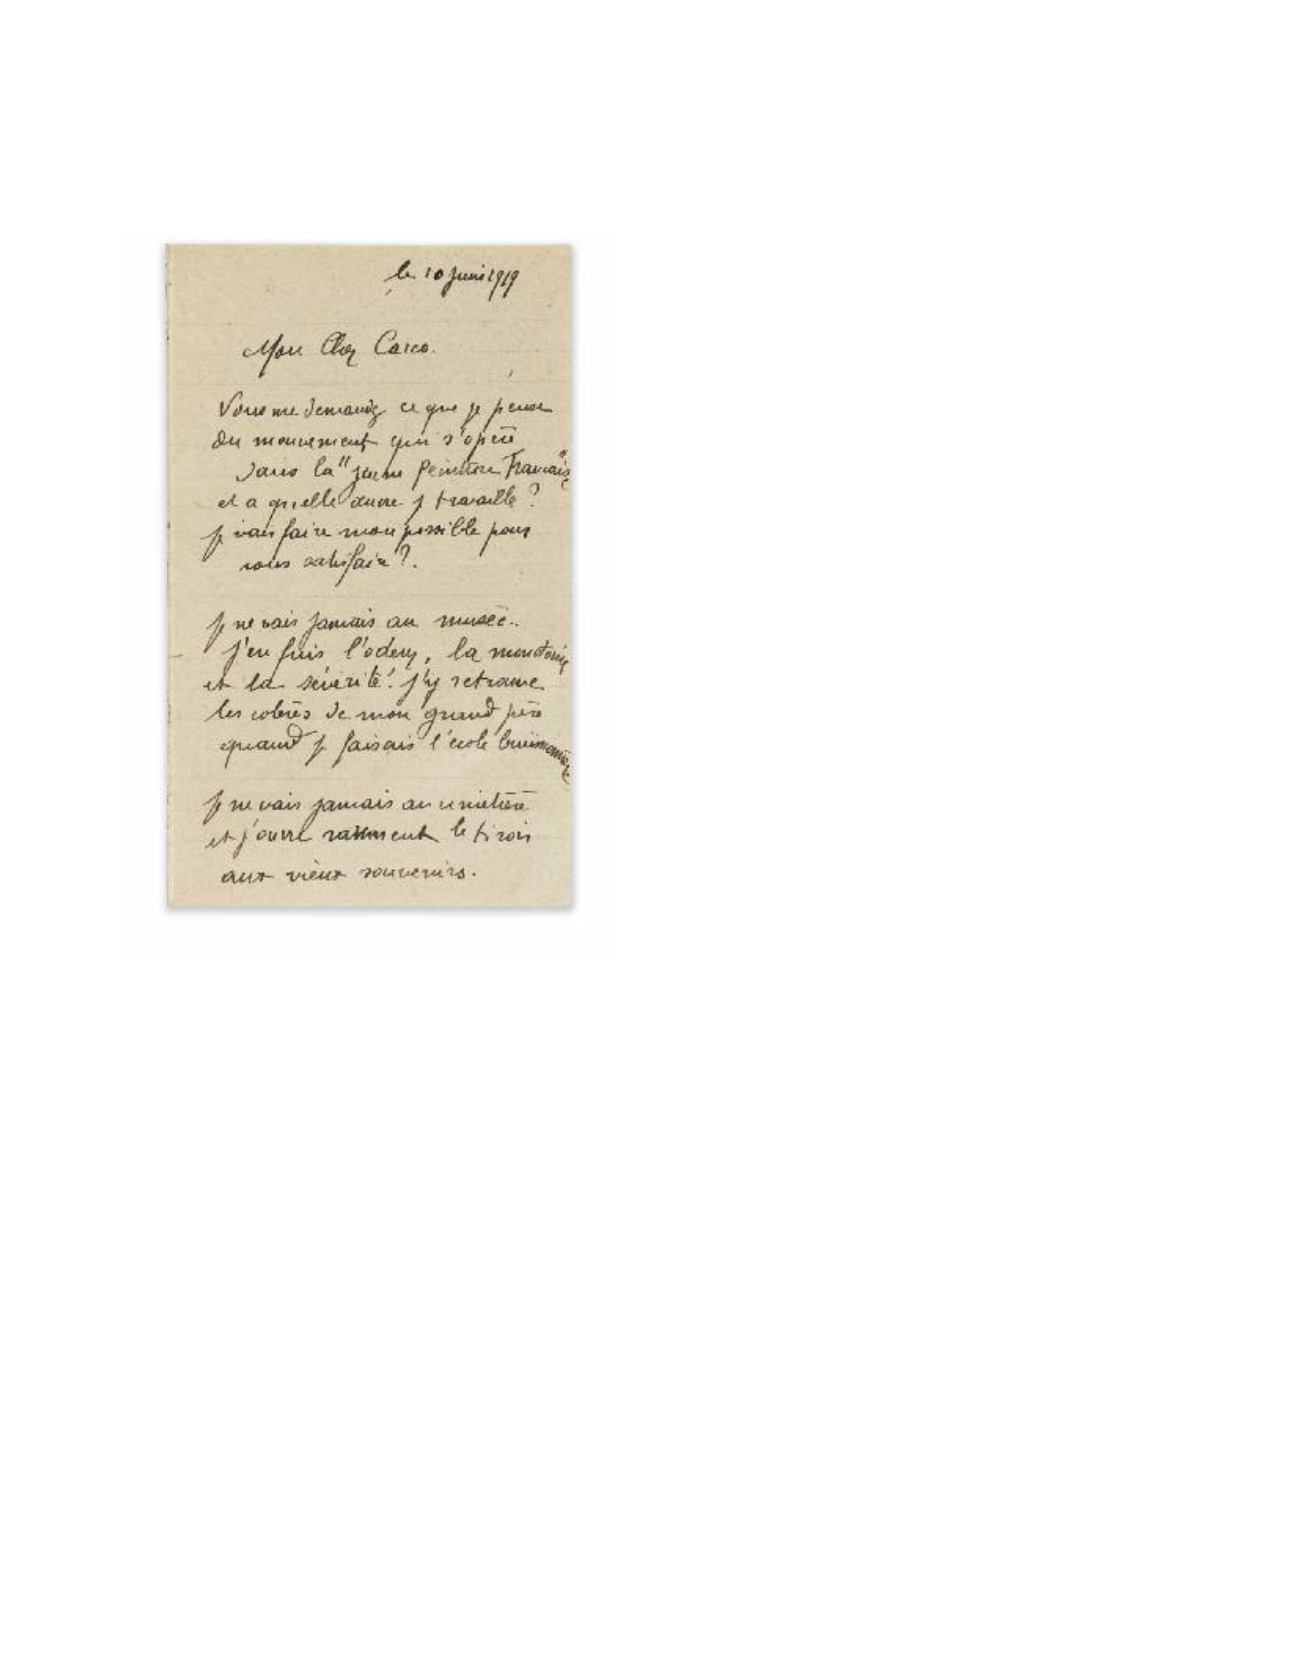 le 10 Juin 1919
Mon Cher Carco.
Vous me demandez ce que je pense
du mouvement qui s'opère
dans la "jeune Peinture Française"
et a quelle œuvre je travaille ?
je vais faire mon possible pour
vous satisfaire ?.
je ne vais jamais au musée.
j'en fuis l'odeur, la monotonie
et la sévérité. j'y retrouve
les colères de mon grand père
quand je faisais l'école buissonnière
je ne vais jamais au cimetière
et j'ouvre rarement le tiroir
aux vieux souvenirs.